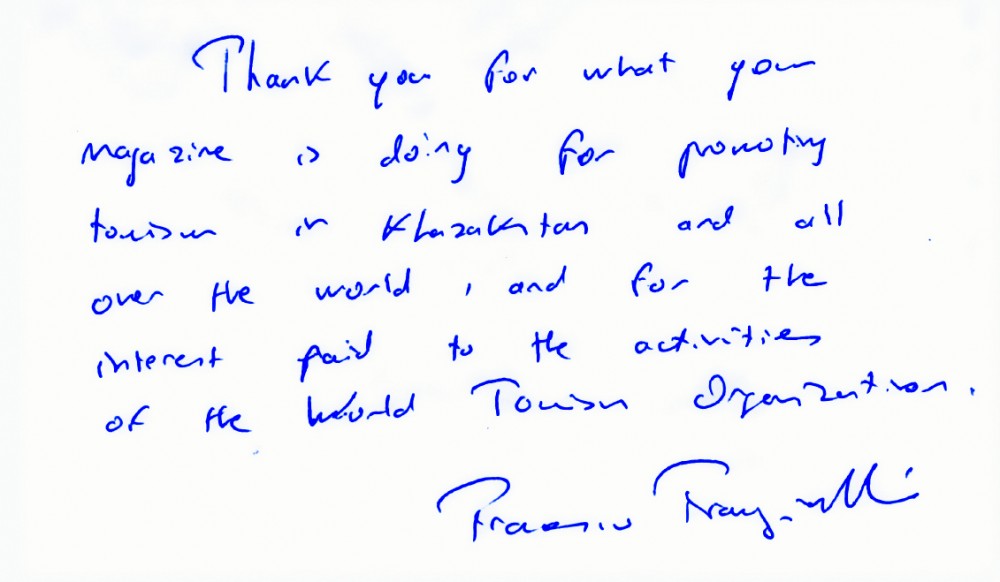 Thank you for what your
magazine is doing for promoting
tourism in Khazakhstan and all
over the world, and for the
interest paid to the activities
of the World Tourism Organization.
Francesco Frangialli